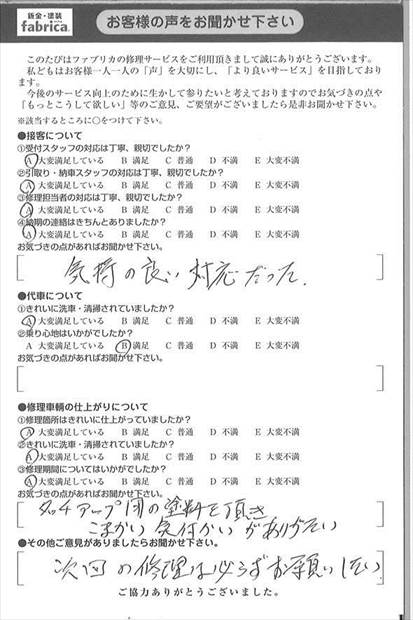 鈑金・塗装
fabrica.
お客様の声をお聞かせ下さい
このたびはファブリカの修理サービスをご利用頂きまして誠にありがとうございます。
私どもはお客様一人一人の「声」を大切にし、「より良いサービス」を目指しており
ます。
今後のサービス向上のために生かして参りたいと考えておりますのでお気づきの点や
「もっとこうして欲しい」等のご意見、ご要望がございましたら是非お聞かせ下さい。
※該当するところに○をつけて下さい。
●接客について
①受付スタッフの対応は丁寧、親切でしたか？
A 大変満足している B 満足 C 普通 D 不満 E 大変不満
②引取り・納車スタッフの対応は丁寧、親切でしたか？
A 大変満足している B 満足 C 普通 D 不満 E 大変不満
③修理担当者の対応は丁寧、親切でしたか？
A 大変満足している B 満足 C 普通 D 不満 E 大変不満
④納期の連絡はきちんとありましたか？
A 大変満足している B 満足 C 普通 D 不満 E 大変不満
お気づきの点があればお聞かせ下さい。
気持の良い対応だった.
●代車について
①きれいに洗車・清掃されていましたか？
A 大変満足している B 満足 C 普通 D 不満 E 大変不満
②乗り心地はいかがでしたか？
A 大変満足している B 満足 C 普通 D 不満 E 大変不満
お気づきの点があればお聞かせ下さい。
●修理車輌の仕上がりについて
①修理箇所はきれいに仕上がっていましたか？
A 大変満足している B 満足 C 普通 D 不満 E 大変不満
②きれいに洗車・清掃されていましたか？
A 大変満足している B 満足 C 普通 D 不満 E 大変不満
③修理期間についてはいかがでしたか？
A 大変満足している B 満足 C 普通 D 不満 E 大変不満
お気づきの点があればお聞かせ下さい。
タッチアップ用の塗料を頂き
こまかい気付かいがありがたい
●その他ご意見がありましたらお聞かせ下さい。
次回の修理は必らずお願いしたい
ご協力ありがとうございました。